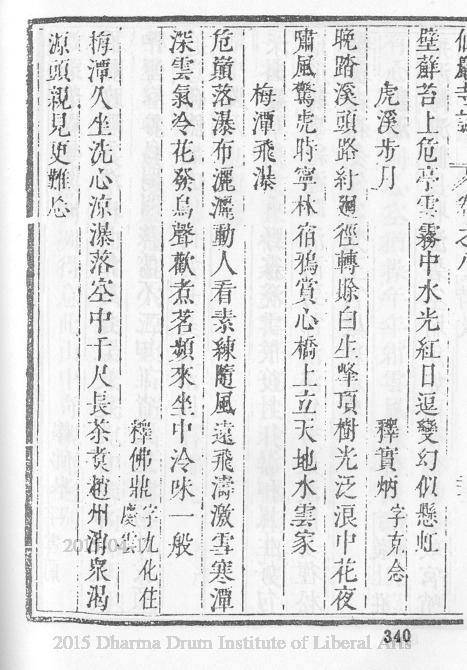 卷之八
壁蘚苔上危亭雲霧中水光紅日逗變幻似懸虹
虎溪步月 釋實炳 字克念
晚踏溪頭路紆廻徑轉賒白生峰頂樹光泛浪中花夜
嘯風驚虎時寧林宿鴉賞心橋上立天地水雲家
梅潭飛瀑
危巔落瀑布灑灑動人看素練隨風遠飛濤激雪寒潭
深雲氣冷花發鳥聲歡煮茗頻來坐中泠味一般
釋佛鼎 字九化住慶雲
梅潭久坐洗心涼瀑落空中千尺長茶煑趙州消衆渴
源頭親見更難忘
340
2015 Dharma Drum Institute of Liberal Arts